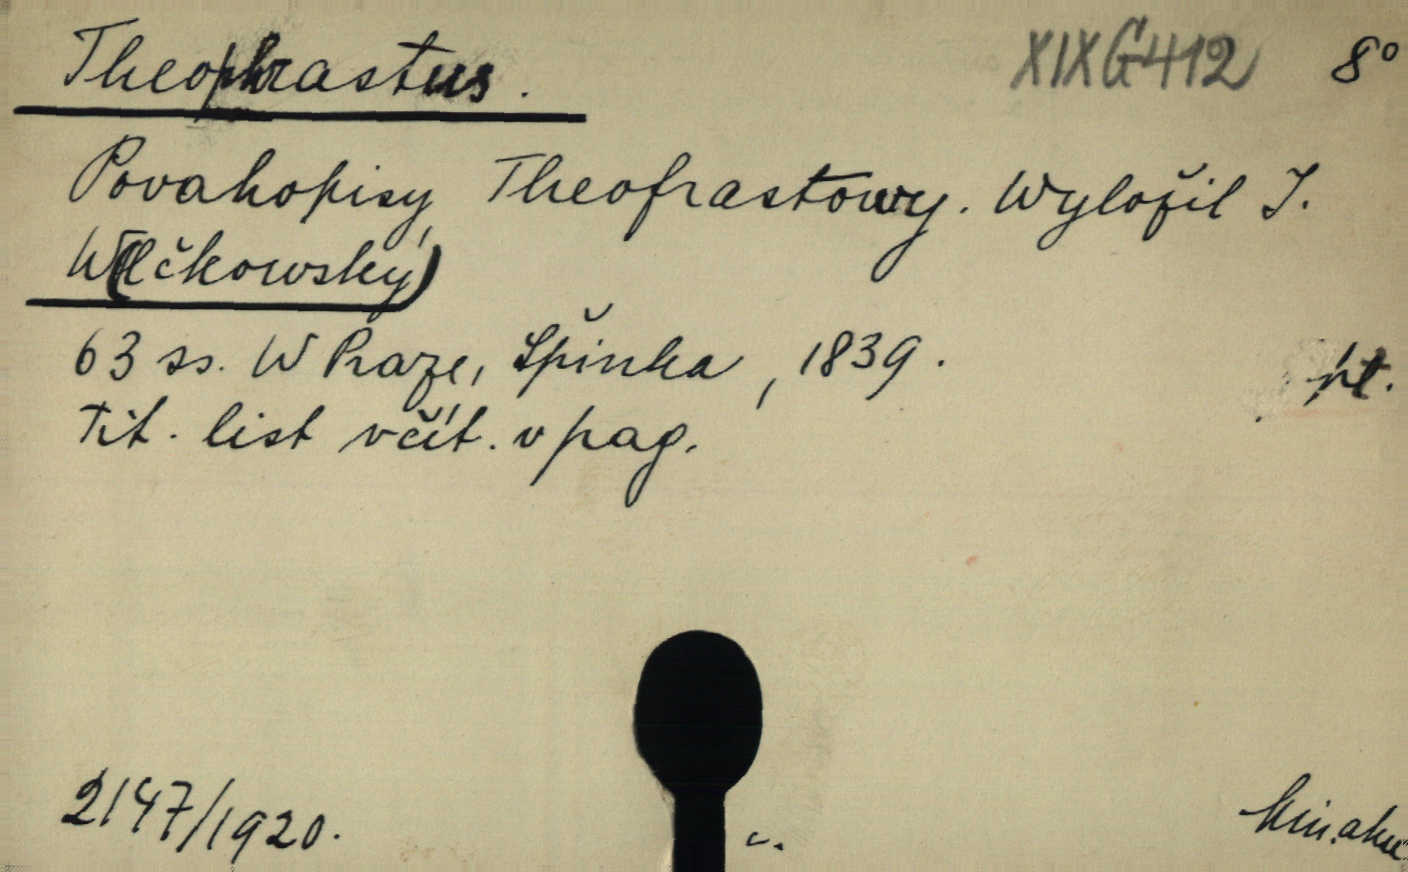 Theophrastus. XIX G 412 8°
Povahopisy Theofrastowy. Wyložil J.
W(lčkowský)
63 ss. W Praze, Špinka, 1839. pt.
Tit. list včít. v pag.
2147/1920.